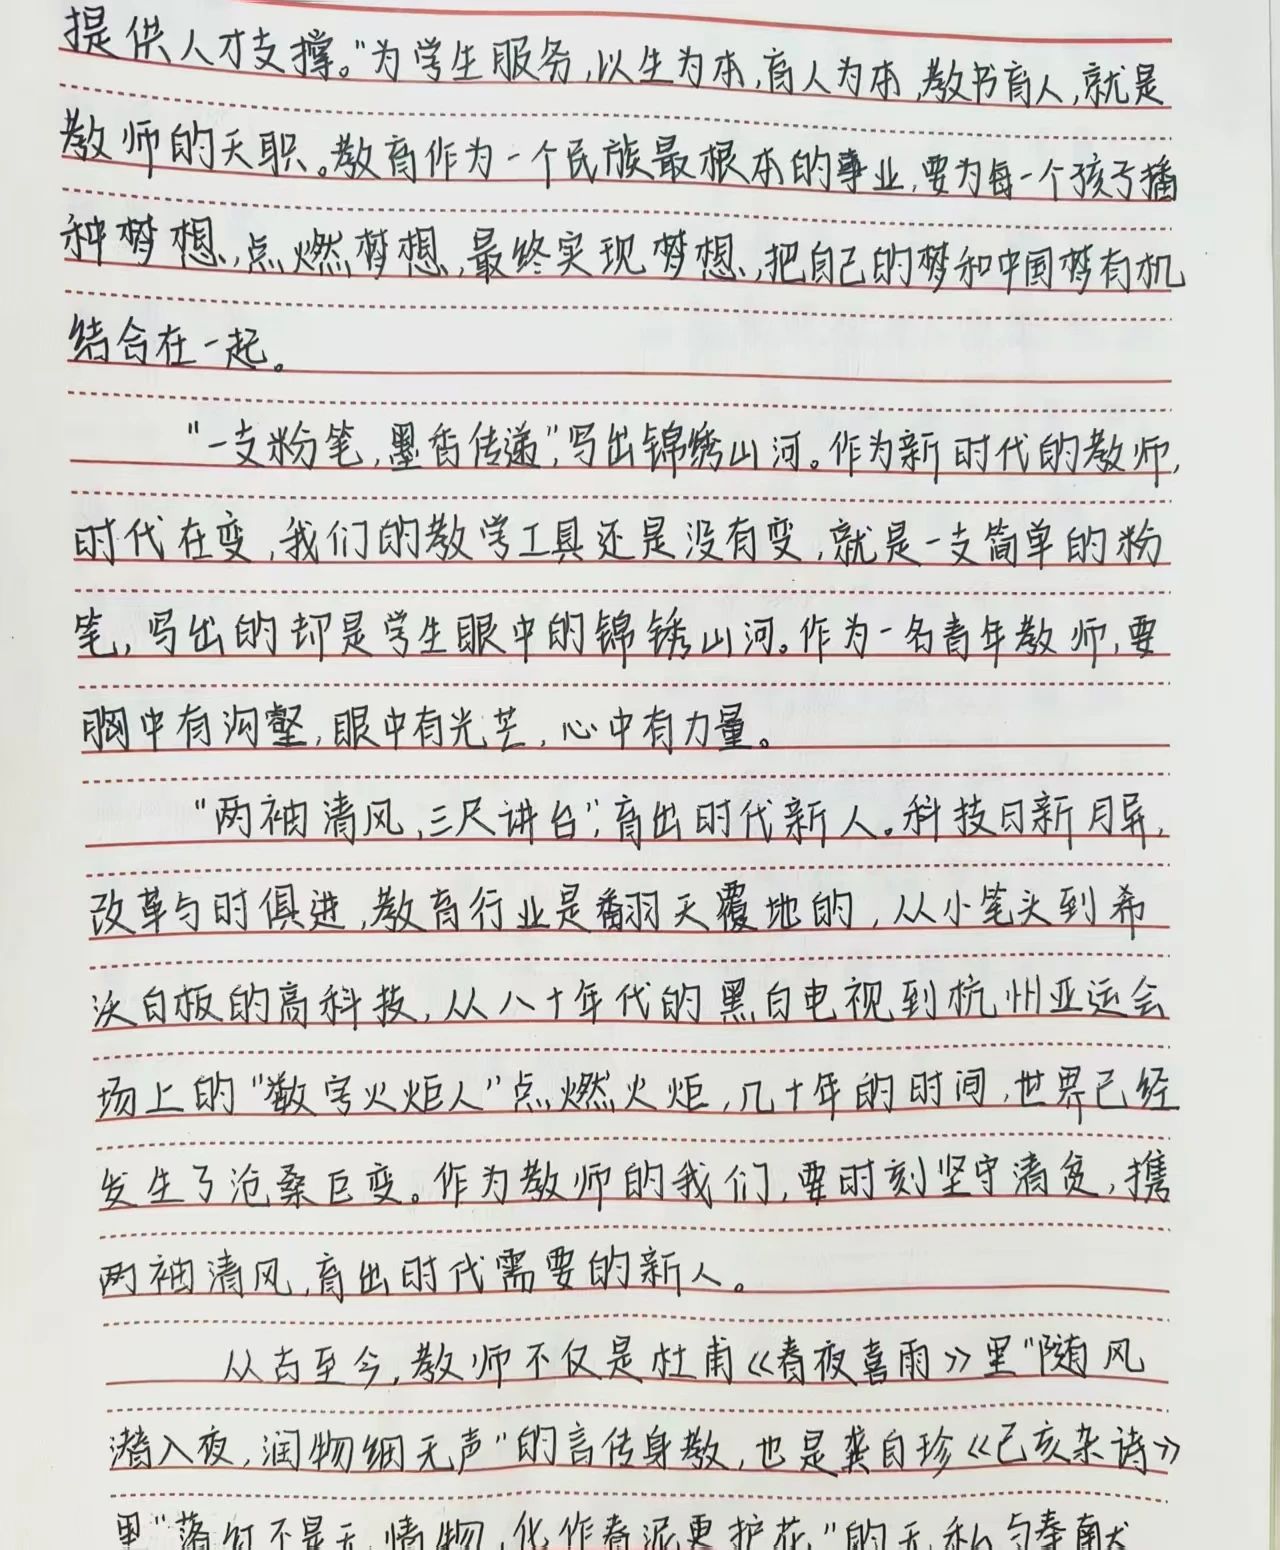 提供人才支撑。"为学生服务,以生为本,育人为本,教书育人,就是
教师的天职。教育作为一个民族最根本的事业,要为每一个孩子播
种梦想,点燃梦想,最终实现梦想,把自己的梦和中国梦有机
结合在一起。
"一支粉笔,墨香传递",写出锦绣山河。作为新时代的教师,
时代在变,我们的教学工具还是没有变,就是一支简单的粉
笔,写出的却是学生眼中的锦锈山河。作为一名青年教师,要
胸中有沟壑,眼中有光芒,心中有力量。
"两袖清风,三尺讲台",育出时代新人。科技日新月异,
改革与时俱进,教育行业是翻天覆地的,从小笔头到希
沃白板的高科技,从八十年代的黑白电视到杭州亚运会
场上的"数字火炬人"点燃火炬,几十年的时间,世界已经
发生了沧桑巨变。作为教师的我们,要时刻坚守清贫,携
两袖清风,育出时代需要的新人。
从古至今,教师不仅是杜甫《春夜喜雨》里"随风
潜入夜,润物细无声"的言传身教,也是龚自珍《己亥杂诗》
里"落红不是无情物,化作春泥更护花"的无私与奉献